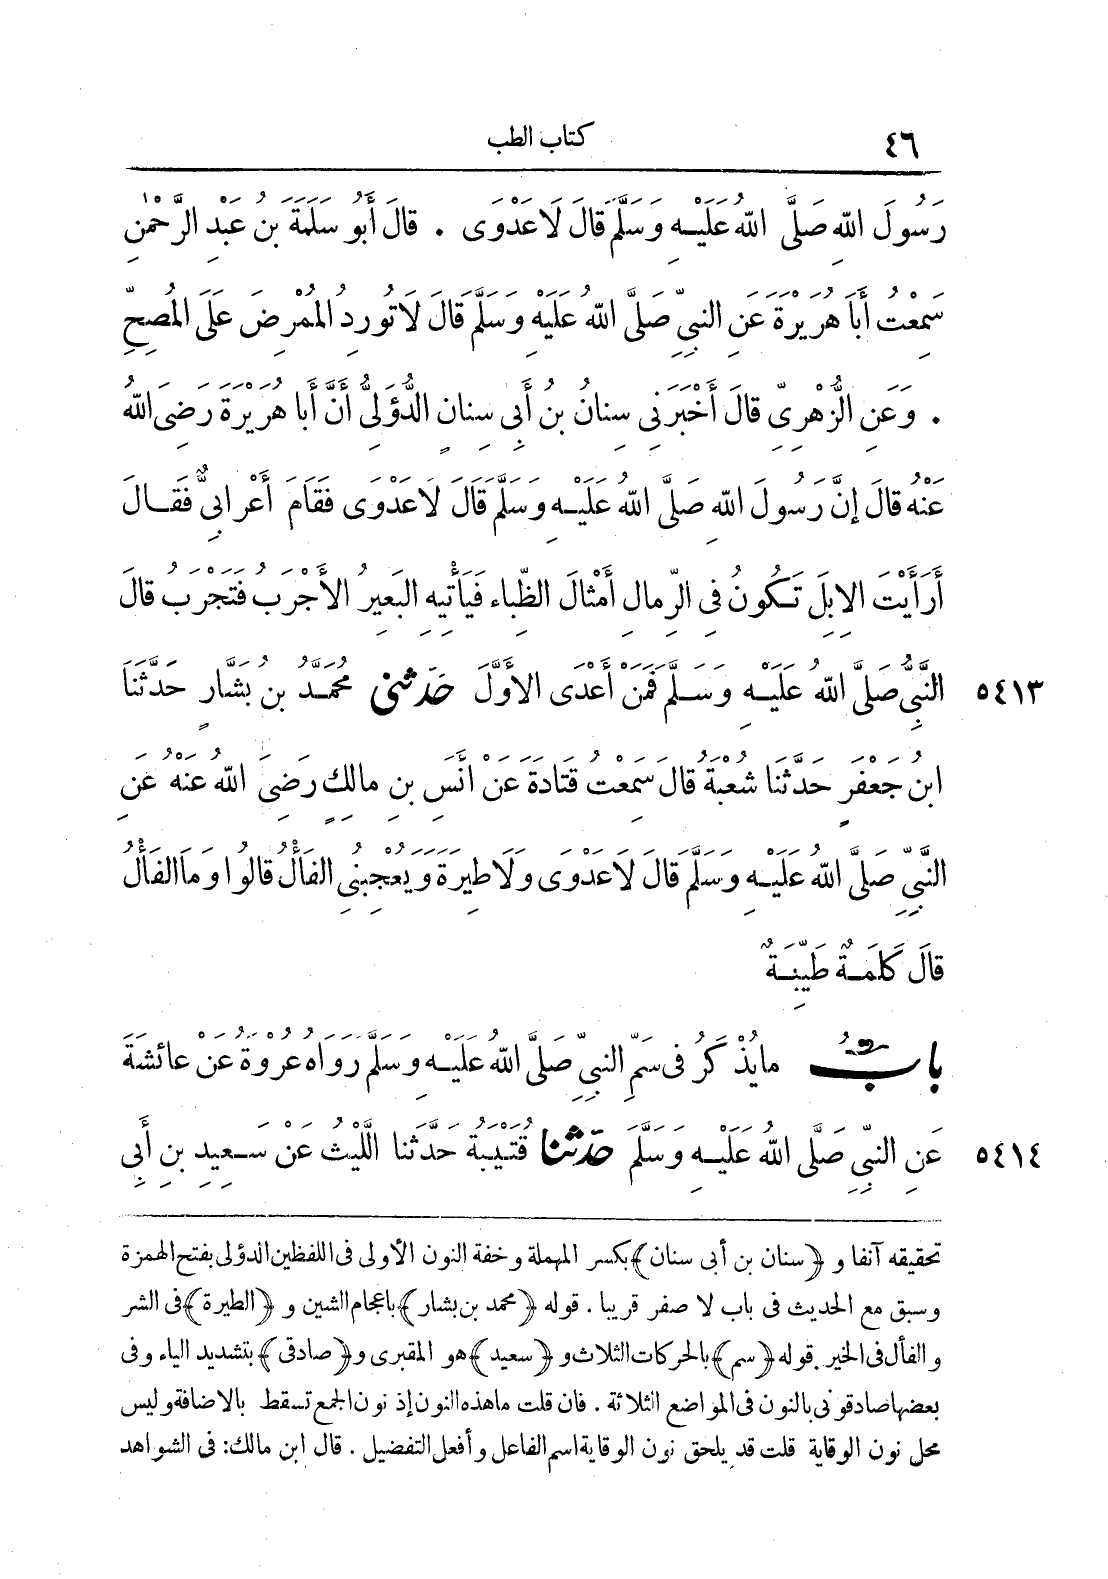 ٤٦
كتاب الطب
رَسُولَ اللهِ صَلَّى اللهُ عَلَيْهِ وَسَلَّمَ قَالَ لَا عَدْوَى . قَالَ أَبُو سَلَمَةَ بنُ عَبْدِ الرَّحْمٰنِ
سَمِعْتُ أَبَا هُرَيْرَةَ عَنِ النبيِّ صَلَّى اللهُ عَلَيْهِ وَسَلَّمَ قَالَ لَا تُورِدُ المُمْرِضَ عَلَى المُصِحِّ
. وَعَنِ الزُّهْرِيِّ قَالَ أَخْبَرَنِي سِنَانُ بنُ أَبِي سِنَانٍ الدُّؤَلِيُّ أَنَّ أَبَا هُرَيْرَةَ رَضِيَ اللهُ
عَنْهُ قَالَ إِنَّ رَسُولَ اللهِ صَلَّى اللهُ عَلَيْهِ وَسَلَّمَ قَالَ لَا عَدْوَى فَقَامَ أَعْرَابِيٌّ فَقَالَ
أَرَأَيْتَ الإِبِلَ تَكُونُ فِي الرِّمَالِ أَمْثَالَ الظِّبَاءِ فَيَأْتِيهِ البَعِيرُ الأَجْرَبُ فَتَجْرَبُ قَالَ
النَّبِيُّ صَلَّى اللهُ عَلَيْهِ وَسَلَّمَ فَمَنْ أَعْدَى الأَوَّلَ حَدَّثَنِي مُحَمَّدُ بنُ بَشَّارٍ حَدَّثَنَا ٥٤١٣
ابنُ جَعْفَرٍ حَدَّثَنَا شُعْبَةُ قَالَ سَمِعْتُ قَتَادَةَ عَنْ أَنَسِ بنِ مَالِكٍ رَضِيَ اللهُ عَنْهُ عَنِ
النَّبِيِّ صَلَّى اللهُ عَلَيْهِ وَسَلَّمَ قَالَ لَا عَدْوَى وَلَا طِيَرَةَ وَيُعْجِبُنِي الفَأْلُ قَالُوا وَمَا الفَأْلُ
قَالَ كَلِمَةٌ طَيِّبَةٌ
بابُ مَا يُذْكَرُ فِي سَمِّ النبيِّ صَلَّى اللهُ عَلَيْهِ وَسَلَّمَ رَوَاهُ عُرْوَةُ عَنْ عَائِشَةَ
عَنِ النبيِّ صَلَّى اللهُ عَلَيْهِ وَسَلَّمَ حَدَّثَنَا قُتَيْبَةُ حَدَّثَنَا اللَّيْثُ عَنْ سَعِيدِ بنِ أَبِي ٥٤١٤
تحقيقه آنفا و ﴿سنان بن أبى سنان﴾ بكسر المهملة وخفة النون الأولى فى اللفظين الدؤلى بفتح الهمزة
وسبق مع الحديث فى باب لا صفر قريبا . قوله ﴿محمد بن بشار﴾ باعجام الشين و ﴿الطيرة﴾ فى الشر
و الفأل فى الخير . قوله ﴿سم﴾ بالحركات الثلاث و ﴿سعيد﴾ هو المقبرى و ﴿صادقى﴾ بتشديد الياء وفى
بعضها صادقونى بالنون فى المواضع الثلاثة . فان قلت ما هذه النون إذ نون الجمع تسقط بالاضافة وليس
محل نون الوقاية قلت قد يلحق نون الوقاية اسم الفاعل وأفعل التفضيل . قال ابن مالك: فى الشواهد